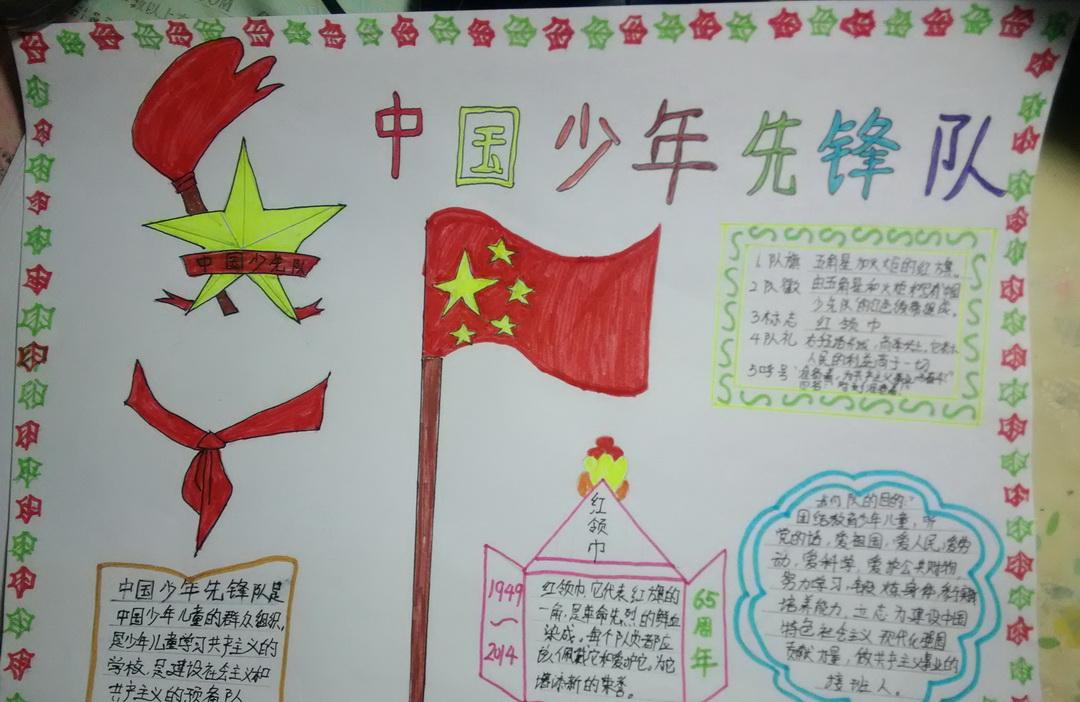 中国少年先锋队
中国少先队
1 队旗 五角星加火炬的红旗。
2 队徽 由五角星和火炬和写有中国
少先队的红色绶带组成。
3 标志 红领巾
4 队礼 右手五指并拢，高举头上，它表示
人民的利益高于一切
5 呼号
红领巾
1949
~
2014
红领巾，它代表红旗的
一角，是革命先烈的鲜血
染成。每个队员都应
该佩戴它和爱护它，为它
增添新的荣誉。
65周年
我们队的目的：
团结教育少年儿童，听
党的话，爱祖国，爱人民，爱劳
动，爱科学，爱护公共财物，
努力学习，锻炼身体，
培养能力，立志为建设中国
特色社会主义现代化强国
贡献力量，做共产主义事业的
接班人。
中国少年先锋队是
中国少年儿童的群众组织，
是少年儿童学习共产主义的
学校，是建设社会主义和
共产主义的预备队